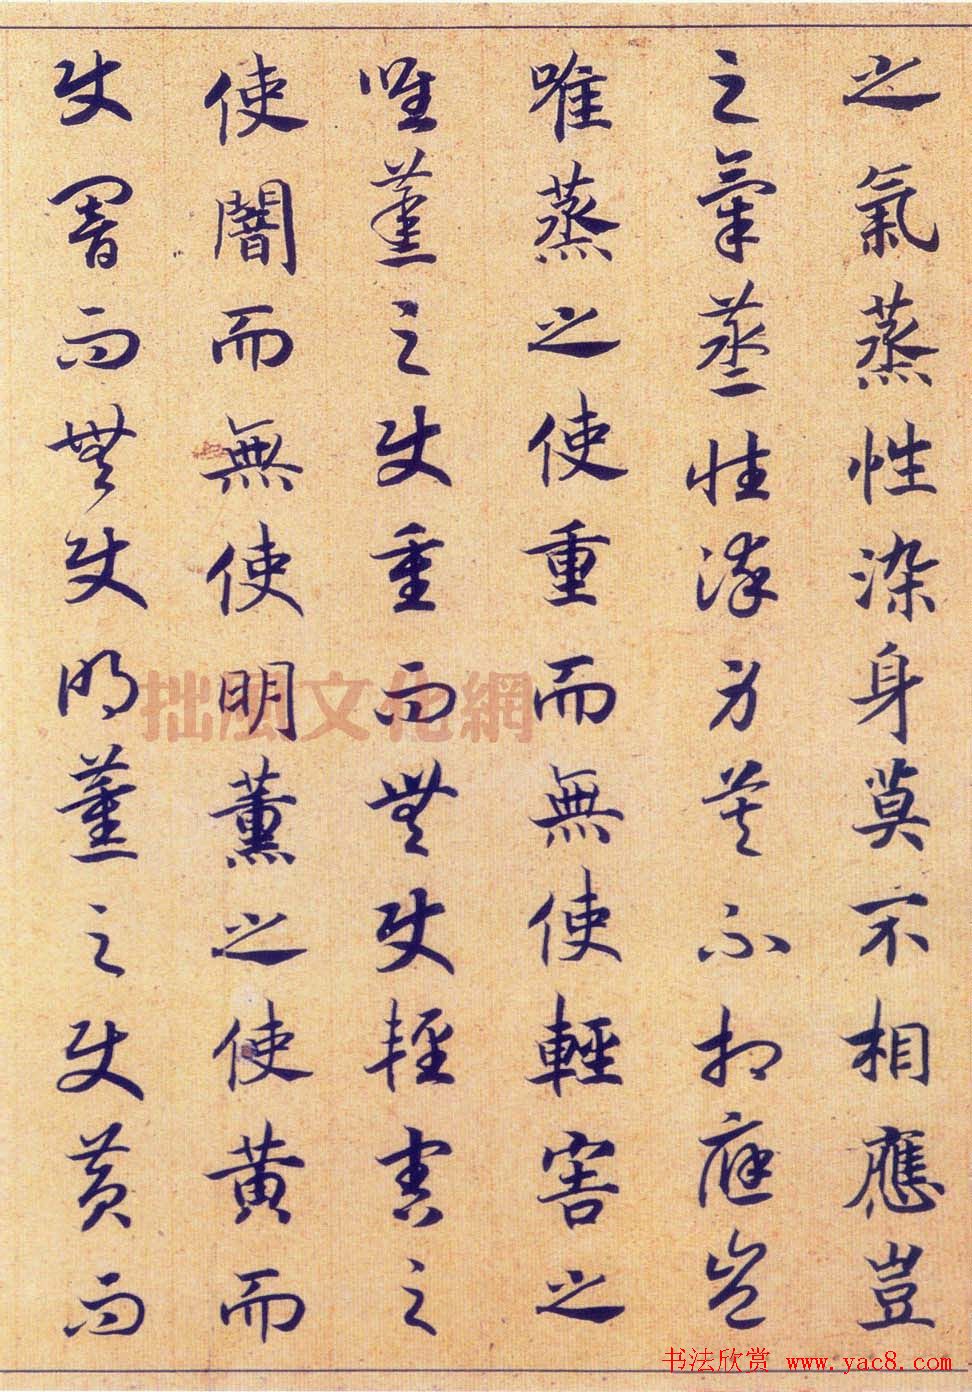 之氣蒸性染身莫不相應豈
之氣蒸性染身莫不相應豈
唯蒸之使重而無使輕害之
唯蒸之使重而無使輕害之
使闇而無使明薰之使黃而
使闇而無使明薰之使黃而
拙風文化網
书法欣赏 www.yac8.com